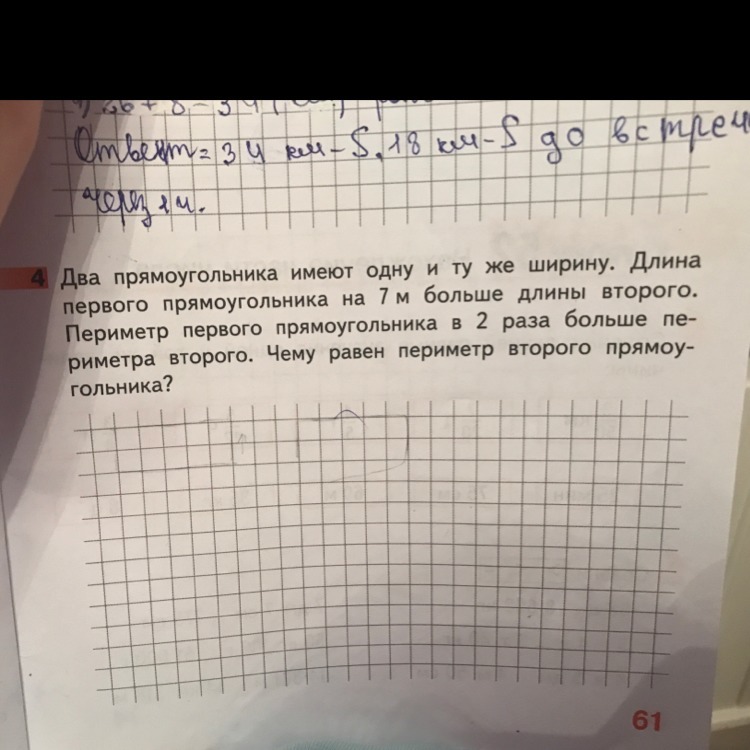 26 + 8 = 34 (км)
Ответ = 34 км – S, 18 км – S до встреч
через 1 ч.
4 Два прямоугольника имеют одну и ту же ширину. Длина
первого прямоугольника на 7 м больше длины второго.
Периметр первого прямоугольника в 2 раза больше пе-
риметра второго. Чему равен периметр второго прямоу-
гольника?
61